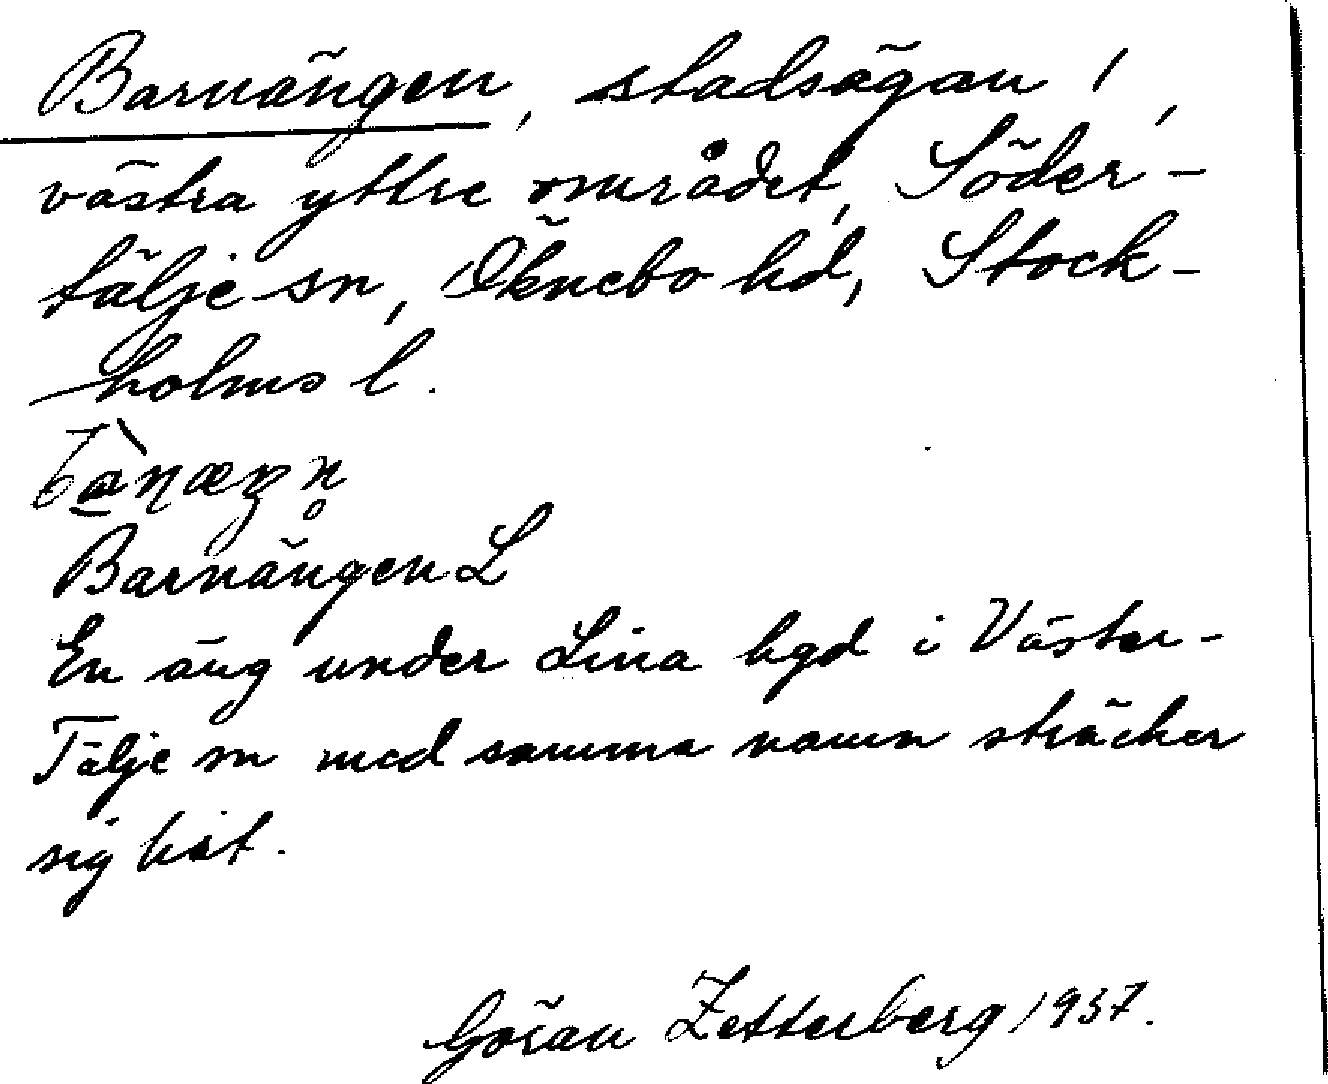 Barnängen, stadsägan 1,
västra yttre området, Söder-
tälje sn, Öknebo hd, Stock-
holms l.
Barnängen L
En äng under Lina hgd i Väster-
Tälje sn med samma namn sträcker
sig hit.
Göran Zetterberg 1937.